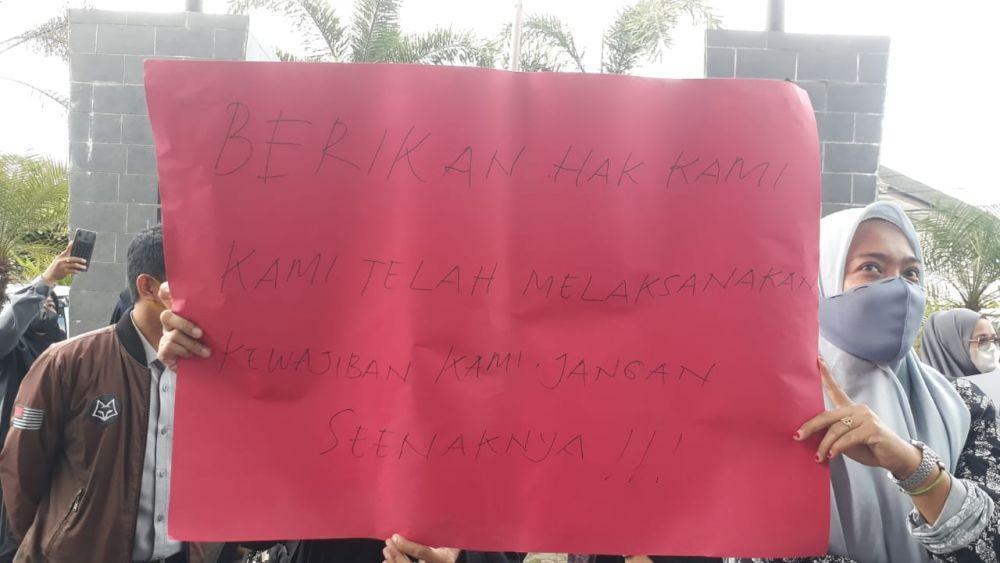 BERIKAN HAK KAMI
KAMI TELAH MELAKSANAKAN
KEWAJIBAN KAMI. JANGAN
SEENAKNYA !!!